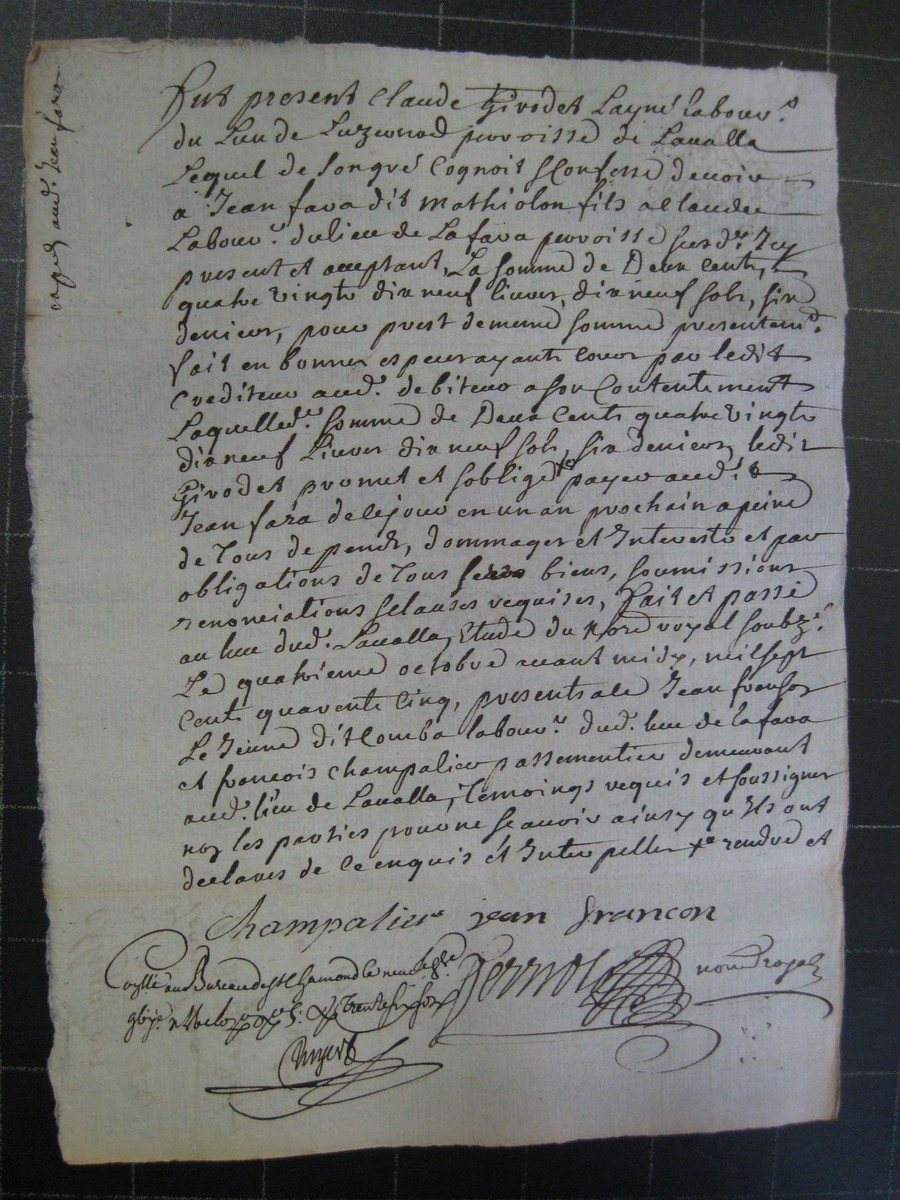 expedi. aud. Jean fara
Fut present Claude Girodet Layné labour.
du Lieu de Luzernod parroisse de Lavalla
Lequel de Songré Cognoit & Confesse devoir
a Jean fara dit mathiolon fils a Claude
Labour. du lieu de Lafara parroisse susd. Icy
present et acceptant, La somme de Deux Cents
quatre vingts dix neuf livres, dix neuf sols, six
deniers, pour prest de meme somme presentem.
fait en bonnes especes ayants cours par ledit
crediteur aud. debiteur a son Contentement
Laquelled. somme de Deux Cents quatre vingts
dix neuf Livres dix neuf sols, six deniers, ledit
Girodet promet et soblige payer aud. it
Jean fara de cejour en un an prochain a peine
de Tous depends, dommages et Interests et par
obligations de Tous ses biens, soumissions
renonciations & clauses requises, Fait et passé
au lieu dud. Lavalla, Etude du No.re royal soubz.
Le quatrieme octobre avant midy, mil sept
Cents quarente Cinq, presents a ce Jean franson
Le Jeune dit Comba labour. dud. lieu de lafara
et francois Champalier passementier demeurant
aud. lieu de Lavalla, Temoings requis et soussignes
non les parties pour ne scavoir ainsy qu'ils ont
declares de ce enquis et Interpelles rendre et
Champalier jean francon
Perrnol no. royal
au Bureau de St Chamond le neuf 8bre
Trente six sols